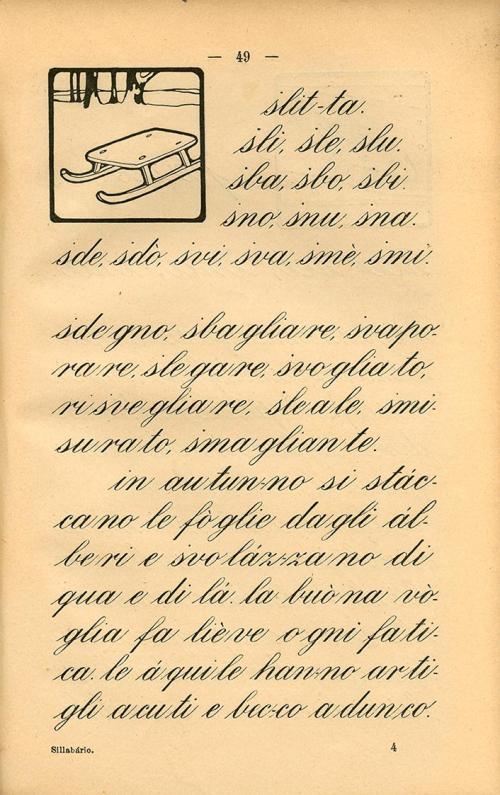 — 49 —
slit-ta.
sli, sle, slu.
sba, sbo, sbi.
sno, snu, sna.
sde, sdò, svi, sva, smè, smi.
sde gno, sba glia re, sva po-
ra re, sle ga re, svo glia to,
ri sve glia re, sle a le, smi-
su ra to, sma glian te.
in au tun-no si stác-
ca no le fò glie da gli ál-
be ri e svo láz-za no di
qua e di lá. la buò na vò-
glia fa liè ve o gni fa ti-
ca. le á qui le han-no ar ti-
gli a cu ti e bec-co a dun co.
Sillabário.
4